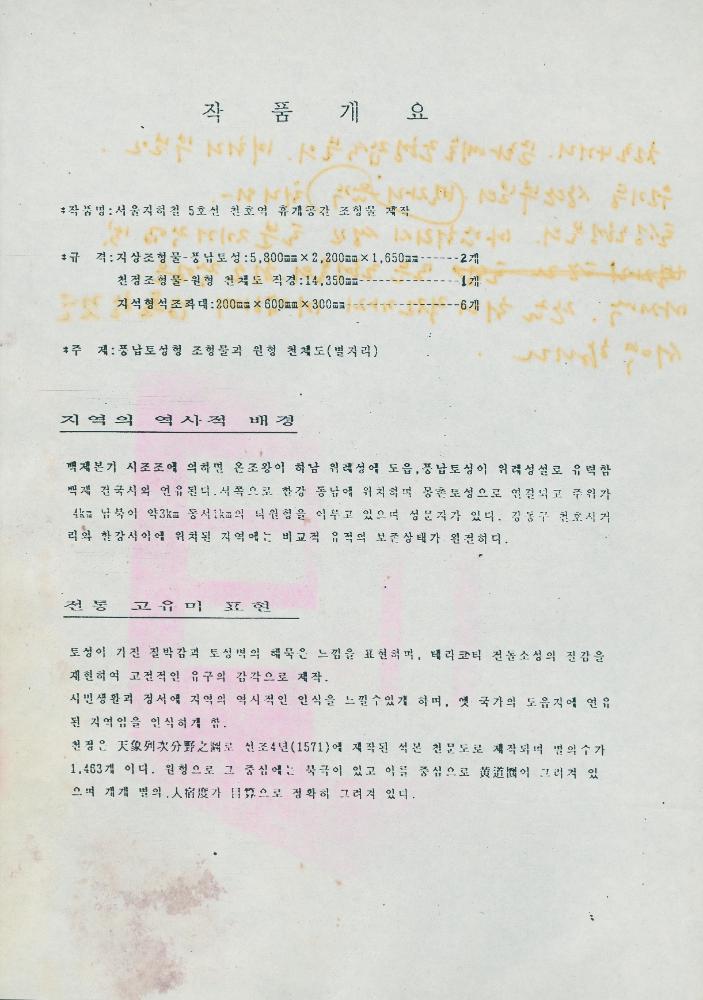 작 품 개 요
*작품명:서울지하철 5호선 천호역 휴게공간 조형물 제작
*규 격:지상조형물-풍납토성:5,800mm×2,200mm×1,650mm------2개
천정조형물-원형 천체도 직경:14,350mm---------------1개
지석형석조좌대:200mm×600mm×300mm-----------------6개
*주 제:풍납토성형 조형물과 원형 천체도(별자리)
지역의 역사적 배경
백제본기 시조조에 의하면 온조왕이 하남 위례성에 도읍,풍납토성이 위례성설로 유력함
백제 건국시와 연유된다.서쪽으로 한강 동남에 위치하며 몽촌토성으로 연결되고 주위가
4km 남북이 약3km 동서1km의 타원형을 이루고 있으며 성문지가 있다. 강동구 천호사거
리와 한강사이에 위치된 지역에는 비교적 유적의 보존상태가 완전하다.
전통 고유미 표현
토성이 가진 질박감과 토성벽의 해묵은 느낌을 표현하며, 테라코타 전돌소성의 질감을
재현하여 고전적인 유구의 감각으로 제작.
시민생활과 정서에 지역의 역사적인 인식을 느낄수있게 하며, 옛 국가의 도읍지에 연유
된 지역임을 인식하게 함.
천정은 天象列次分野之圖로 선조4년(1571)에 제작된 석본 천문도로 제작되며 별의수가
1,463개 이다. 원형으로 그 중심에는 북극이 있고 이를 중심으로 黄道圈이 그려져 있
으며 개개 별의 入宿度가 目算으로 정확히 그려져 있다.